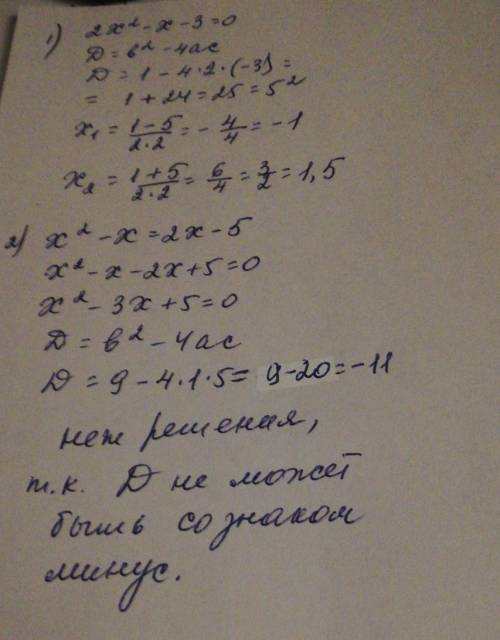 1) 2x² - x - 3 = 0
D = b² - 4ac
D = 1 - 4·2·(-3) =
= 1 + 24 = 25 = 5²
x₁ = (1-5)/(2·2) = - 4/4 = -1
x₂ = (1+5)/(2·2) = 6/4 = 3/2 = 1,5
2) x² - x = 2x - 5
x² - x - 2x + 5 = 0
x² - 3x + 5 = 0
D = b² - 4ac
D = 9 - 4·1·5 = 9-20 = -11
нет решения,
т.к. D не может
быть со знаком
минус.